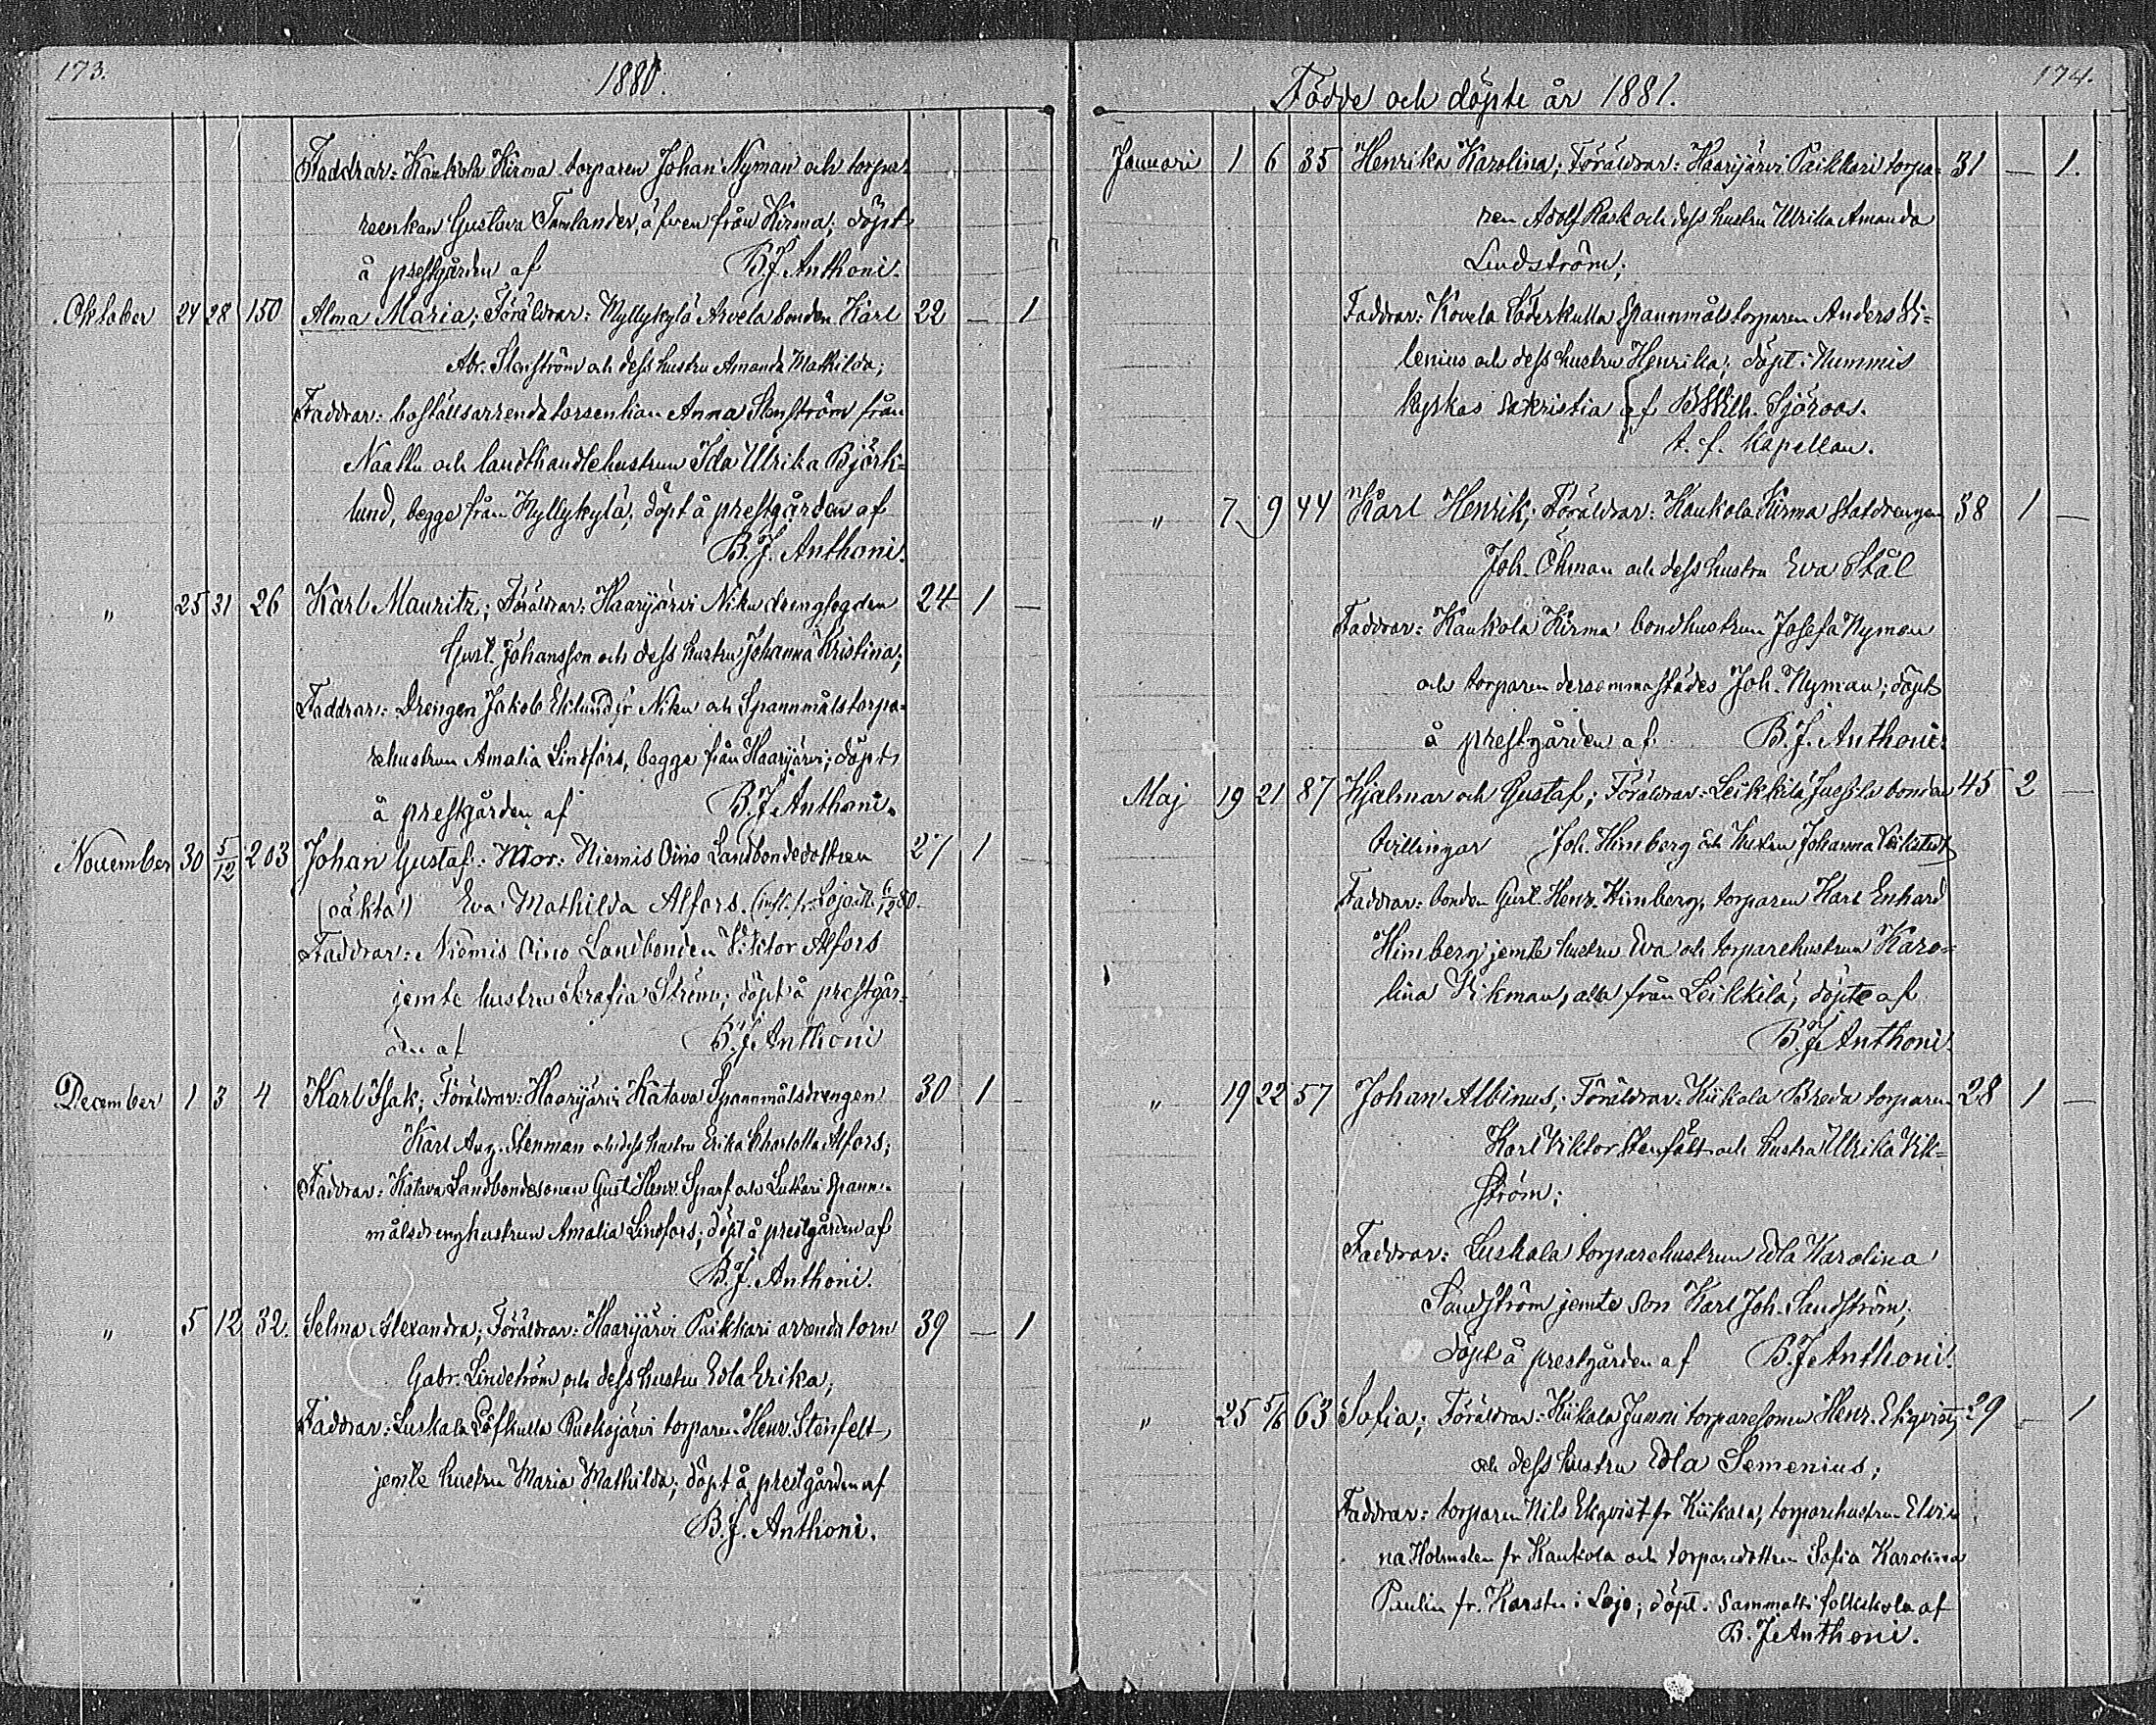 173.
1880.
Faddrar: Kaukola Kirma torparen Johan Nyman och torpa-
reenkan Gustava Tamlander, äfven från Kirma; döpt
å prestgården af B. J. Anthoni.
Oktober 24 28 150 Alma Maria; Föräldrar: Myllykylä Arvela bonden Karl 22 — 1
Abr. Stenström och dess hustru Amanda Mathilda;
Faddrar: boställsarrendatorsenkan Anna Stenström från
Naakka och landthandlehustrun Ida Ulrika Björk-
lund, begge från Myllykylä; döpt å prestgården af
B. J. Anthoni.
" 25 31 26 Karl Mauritz; Föräldrar: Haarijärvi Niku drengfogden 24 1 —
Gust. Johansson och dess hustru Johanna Kristina;
Faddrar: Drengen Jakob Eklund fr Niku och Spannmålstorpa-
rehustrun Amalia Lindfors, begge från Haarijärvi; döpt
å prestgården af B. J. Anthoni.
November 30 5/12 203 Johan Gustaf: Mor: Niemis Oino Landbondedottren 27 1
(oäkta) Eva Mathilda Alfors. Lojo 80.
Faddrar: Niemis Oino Landbonden Viktor Alfors
jemte hustru Serafia Ström; döpt å prestgår-
den af B. J. Anthoni
December 1 3 4 Karl Isak; Föräldrar: Haarijärvi Katava Spannmålsdrengen 30 1 -
Karl Aug. Stenman och dess hustru Erika Charlotta Alfors;
Faddrar: Katava Landbondesonen Gust. Henr. Sparf och Lukari Spann-
målsdrenghustrun Amalia Lindfors; döpt å prestgården af
B. J. Anthoni.
" 5 12 32. Selma Alexandra; Föräldrar: Haarijärvi Paikkari arrendatorn 39 — 1
Gabr. Lindström och dess hustru Edla Erika;
Faddrar: Luskala Löfkulla Putkojärvi torparen Henr. Stenfelt
jemte hustru Maria Mathilda; döpt å prestgården af
B. J. Anthoni.
174.
Födde och döpte år 1881.
Januari 1 6 35 Henrika Karolina; Föräldrar: Haarijärvi Paikkari torpa- 31 — 1.
ren Adolf Rask och dess hustru Ulrika Amanda
Lindström;
Faddrar: Kovela Söderkulla Spannmålstorparen Anders Si-
lenius och dess hustru Henrika; döpt i Nummis
kyrkas sakristia af Wilh. Sjöroos.
t. f. Kapellan.
" 7 9 44 Karl Henrik; Föräldrar: Kaukola Kirma statdrengen 38 1 —
Joh. Öhman och dess hustru Eva Stål
Faddrar: Kaukola Kirma bondhustrun Josefa Nyman
och torparen dersammastädes Joh. Nyman; döpt
å prestgården af B. J. Anthoni.
Maj 19 21 87 Hjalmar och Gustaf; Föräldrar: Leikkilä Jussila bonden 45 2 —
tvillingar Joh. Himberg och hustru Johanna
Faddrar: bonden Gust. Henr. Himberg, torparen Karl Enhard
Himberg jemte hustru Eva och torparehustrun Karo-
lina Vikman, alla från Leikkilä; döpte af
B. J. Anthoni.
" 19 22 57 Johan Albinus; Föräldrar: Kiikala Breda torparen 28 1 —
Karl Viktor Stenfält och hustru Ulrika Vik-
ström;
Faddrar: Luskala torparehustrun Edla Karolina
Sandström jemte son Karl Joh. Sandström;
döpt å prestgården af B. J. Anthoni.
" 25 5/6 63 Sofia; Föräldrar: Kiikala Jussi torparesonen Henr. Ekqvist 29 - 1
och dess hustru Edla Semenius;
Faddrar: torparen Nils Ekqvist fr Kiikala, torparehustrun Elvi-
na Holmsten fr Kaukola och torparedottren Sofia Karolina
Paulin fr. Karstu i Lojo; döpt i Sammatti folkskola af
B. J. Anthoni.